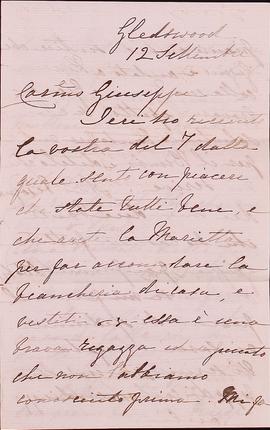 Gledswood
12 Settembre
Carmo Giuseppe
Ieri ho ricevuto
la vostra del 7 dalla
quale sento con piacere
che state tutti bene, e
che la Marietta
per far accomodare la
biancheria di casa, e
vestiti essa è una
brava ragazza ed
che non abbiamo
conosciuto prima. Mi fa